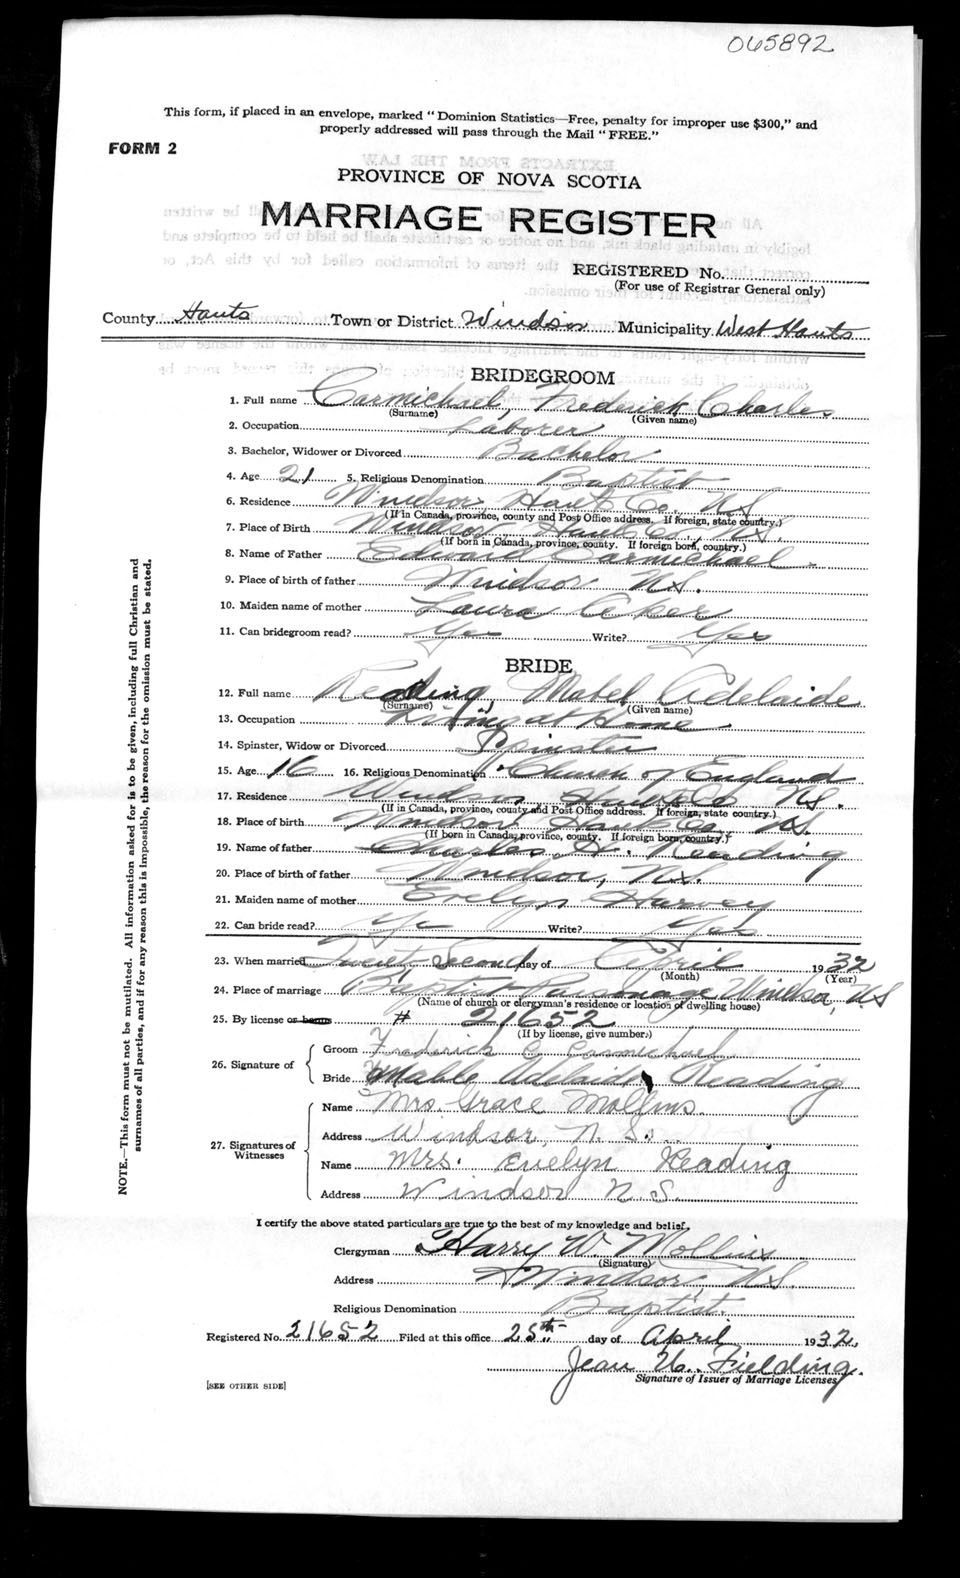 065892
This form, if placed in an envelope, marked "Dominion Statistics—Free, penalty for improper use $300," and
properly addressed will pass through the Mail "FREE."
FORM 2
PROVINCE OF NOVA SCOTIA
MARRIAGE REGISTER
REGISTERED No.
(For use of Registrar General only)
County Hants Town or District Windsor Municipality West Hants
BRIDEGROOM
1. Full name Carmichael, Frederick Charles
(Surname) (Given name)
2. Occupation Laborer
3. Bachelor, Widower or Divorced Bachelor
4. Age 21 5. Religious Denomination Baptist
6. Residence Windsor Hants Co. N.S.
(If in Canada, province, county and Post Office address. If foreign, state country.)
7. Place of Birth Windsor Hants Co., N.S.
(If born in Canada, province, county. If foreign born, country.)
8. Name of Father Edward Carmichael
9. Place of birth of father Windsor N.S.
10. Maiden name of mother Laura Aker
11. Can bridegroom read? Yes Write? Yes
BRIDE
12. Full name Reading, Mabel Adelaide
(Surname) (Given name)
13. Occupation Living at Home
14. Spinster, Widow or Divorced Spinster
15. Age 16 16. Religious Denomination Church of England
17. Residence Windsor Hants Co N.S.
(If in Canada, province, county and Post Office address. If foreign, state country.)
18. Place of birth Windsor, Hants Co N.S.
(If born in Canada, province, county. If foreign born, country.)
19. Name of father Charles W. Reading
20. Place of birth of father Windsor, N.S.
21. Maiden name of mother Evelyn Harvey
22. Can bride read? Yes Write? Yes
23. When married Twenty Second day of April 1932
(Month) (Year)
24. Place of marriage Baptist Parsonage Windsor, N.S
(Name of church or clergyman's residence or location of dwelling house)
25. By license or banns # 21652
(If by license, give number.)
26. Signature of
Groom Fradrick C Carmichael
Bride Mable Adelaide Reading
27. Signatures of Witnesses
Name Mrs. Grace Mollins
Address Windsor, N.S.
Name Mrs. Evelyn Reading
Address Windsor N.S.
I certify the above stated particulars are true to the best of my knowledge and belief.
Clergyman Harry W. Mollins
(Signature)
Address Windsor, N.S.
Religious Denomination Baptist.
Registered No. 21652 Filed at this office 25th day of April 1932.
Jean U. Fielding.
Signature of Issuer of Marriage Licenses
[SEE OTHER SIDE]
NOTE.—This form must not be mutilated. All information asked for is to be given, including full Christian and
surnames of all parties, and if for any reason this is impossible, the reason for the omission must be stated.